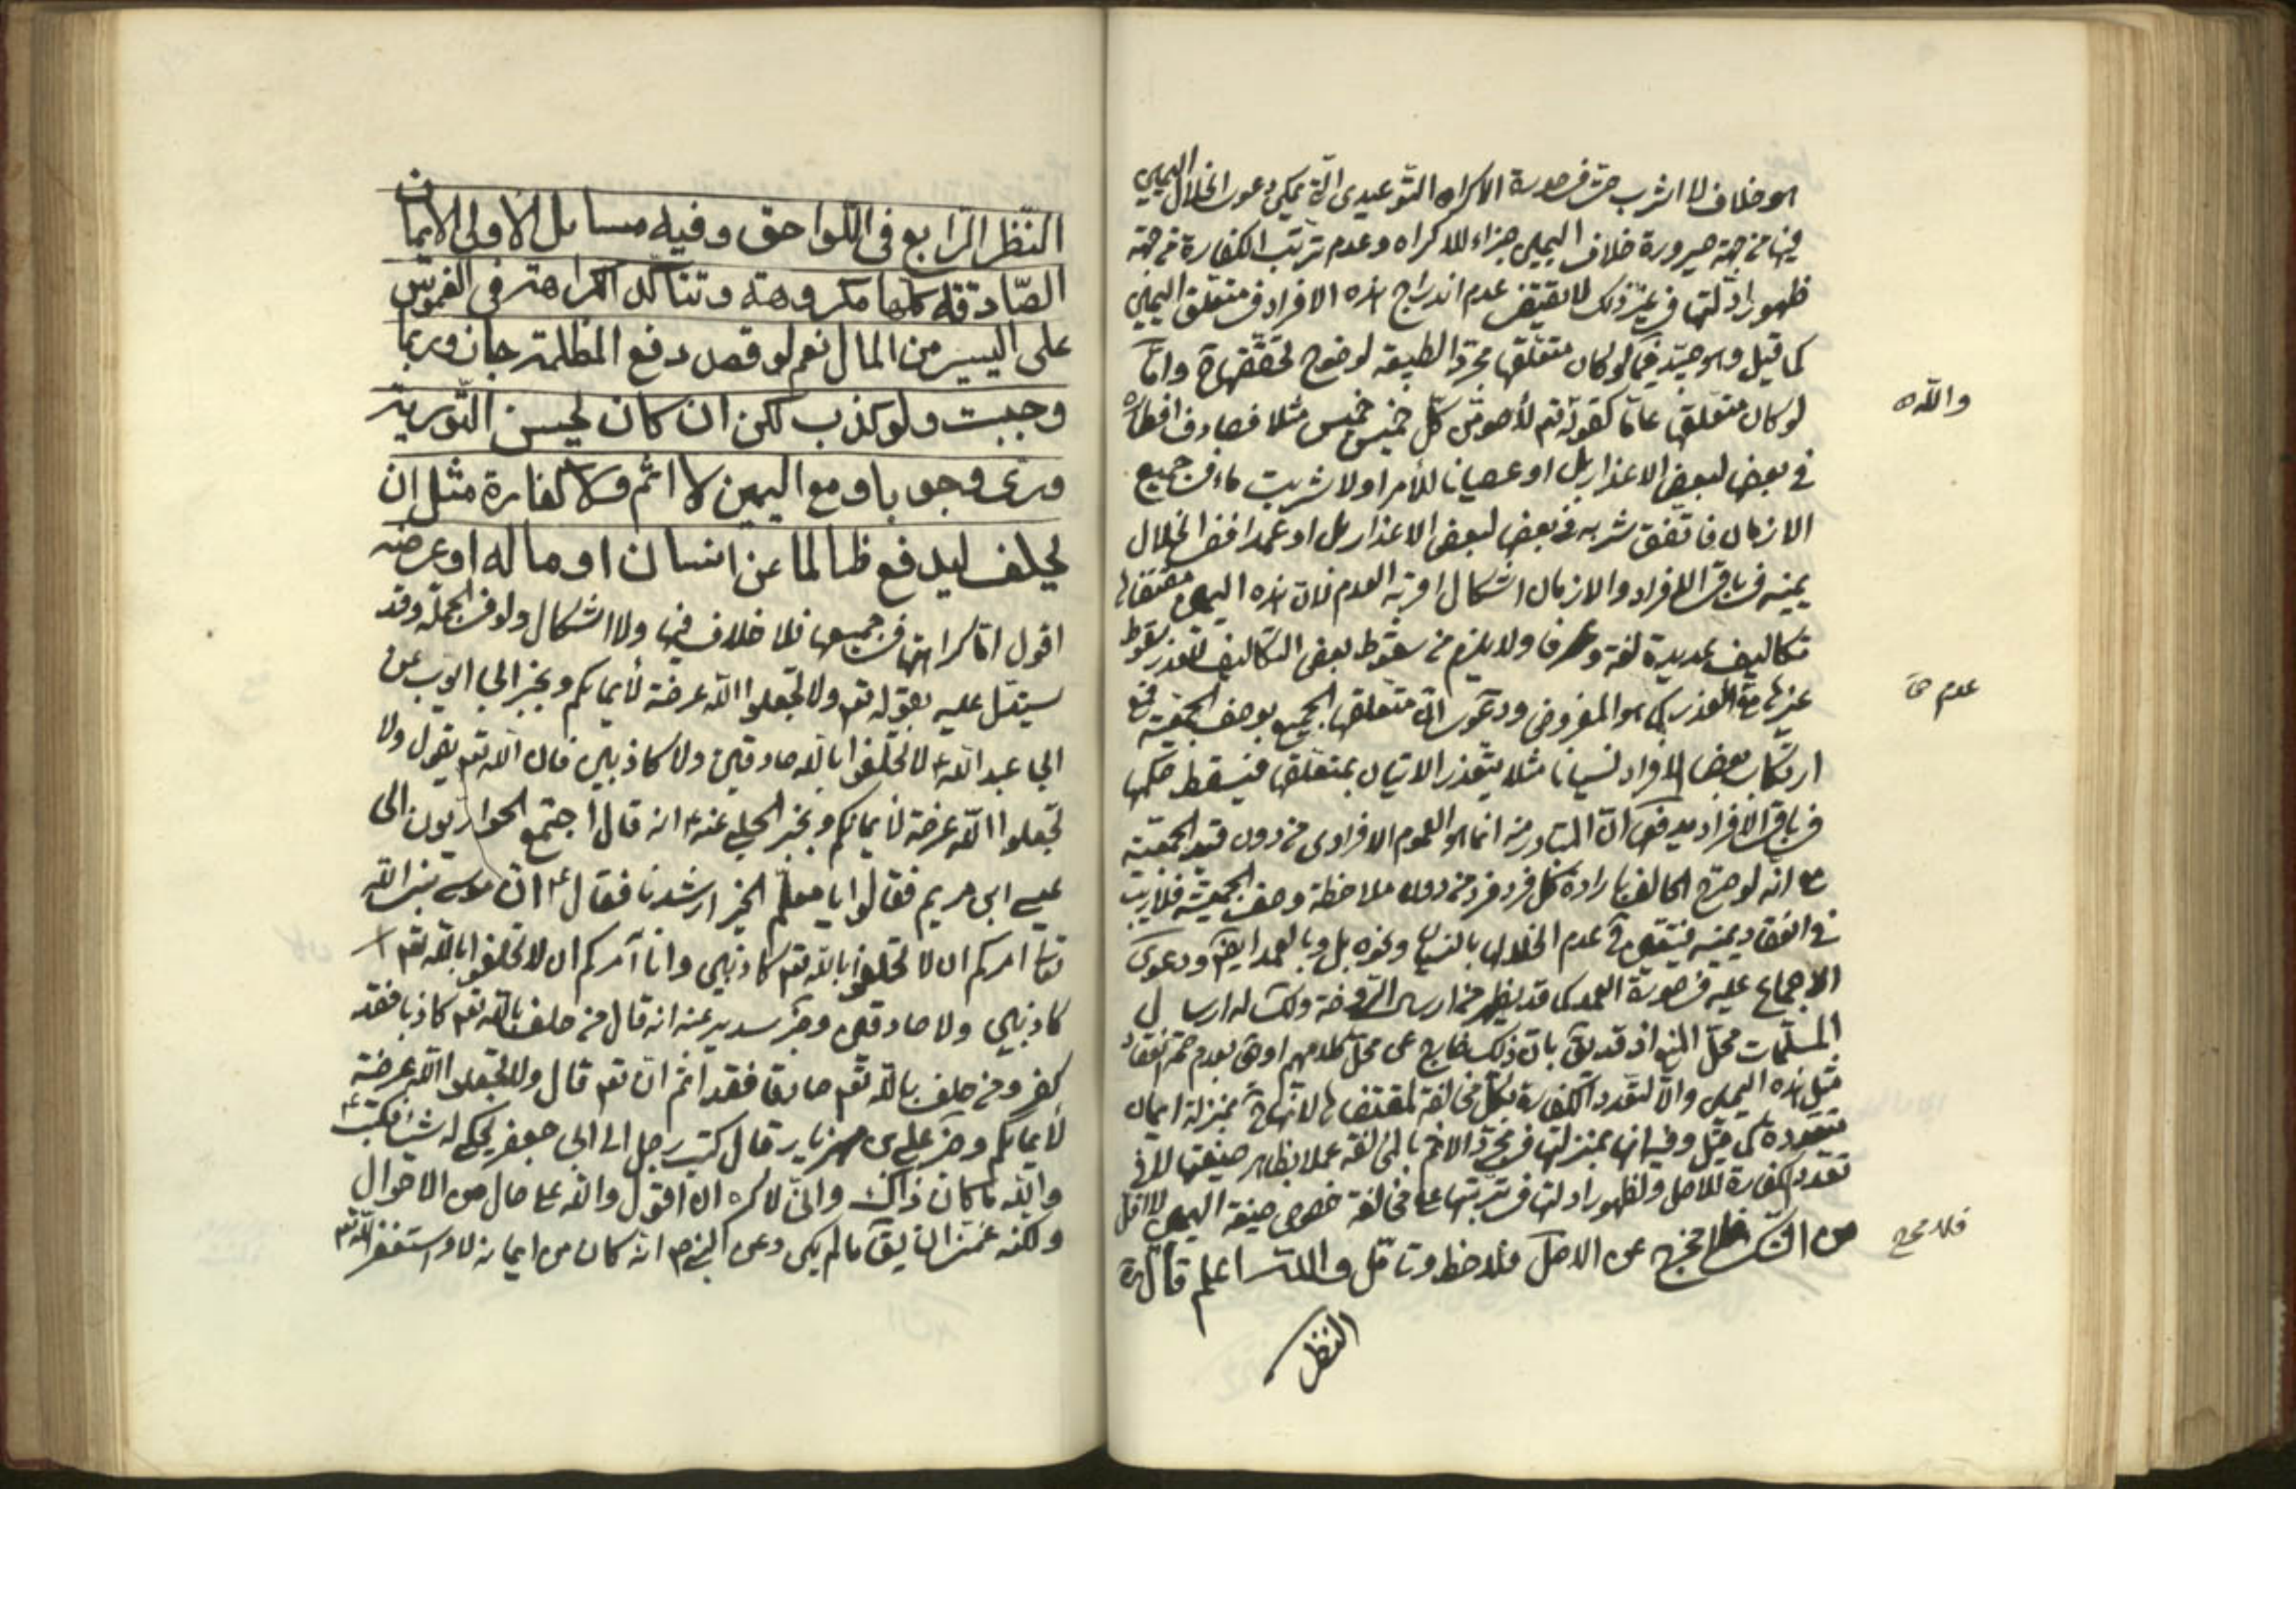 هو خلاف لا اشرب حتى في صورة الاكراه التوعيدى الذى يمكن دعوى انحلال اليمين
فيها من جهة صيرورة خلاف اليمين جزاء للاكراه وعدم ترتب الكفارة من جهة
ظهور ادلتها في غير ذلك لا يقتضى عدم اندراج هذه الافراد في متعلق اليمين
كما قيل وهو جيد فيما لو كان متعلقها مجرد الطبيعة لوضوح تحققها ح واما
لو كان متعلقها عاما كقوله لأصومن كل خميس خميس مثلا فصادف افطاره
في بعض لبعض الاعذار بل او عصيانا للأمر او لا شربت ماء في جميع
الازمان فاتفق شربه في بعض لبعض الاعذار بل او عمدا ففى انحلال
يمينه في باقى الافراد والازمان اشكال اقربه العدم لان هذه اليمين مقتضاها
تكاليف عديدة لغة وعرفا ولا يلزم من سقوط بعض التكاليف للعذر سقوط
غيرها مع العذر كما هو المفروض ودعوى ان متعلقها الجميع بوصف الجمعية فمع
ارتكاب بعض الافراد نسيانا مثلا يتعذر الاتيان بمتعلقها فيسقط حكمها
في باقى الافراد مدفوعة ان المتبادر منه انما هو العموم الافرادى من دون قيد الجمعية
مع انه لو صرح الحالف بارادة كل فرد فرد من دون ملاحظة وصف الجمعية فلا ريب
في انعقاد يمينه فيتعين ح عدم انحلال بالنسيان ونحوه بل وبالعمد ايضا ودعوى
الاجماع عليه في صورة العمد كما قد يظهر من ارسال الروضة ولك له ارسال
المسلمات محل المنع اذ قد يق بان ذلك خارج عن محل كلامهم او هى بعدم صحة انعقاد
مثل هذه اليمين والا لتعدد الكفارة بكل مخالفة لمقتضاها لانها ح بمنزلة ايمان
متعددة كما قيل وفيه انها بمنزلتها في مجرد الاثم بالمخالفة عملا بظاهر صيغتها لا في
تعدد الكفارة للاصل ولظهور ادلتها في ترتبها على مخالفة خصوص صيغة اليمين لا اقل
من الشك فلا مخرج عن الاصل فلاحظ وتامل والله اعلم قال ره
النظر
والله
عدم ح
فلا مخرج
النظر الرابع في اللواحق وفيه مسائل الاولى الايمان
الصادقة كلها مكروهة وتتاكد الكراهة في الغموس
على اليسير من المال نعم لو قصد دفع المظلمة جاز وربما
وجبت ولو كذب لكن ان كان يحسن التورية
ورى وجوبا ومع اليمين لا اثم ولا كفارة مثل ان
يحلف ليدفع ظالما عن انسان او ماله او عرضه
اقول اما كراهتها في جميعها فلا خلاف فيها ولا اشكال ولو في الجملة وقد
يستدل عليه بقوله تعم ولا تجعلوا الله عرضة لأيمانكم وبخبر ابى ايوب عن
ابى عبد الله ع لا تحلفوا بالله صادقين ولا كاذبين فان الله تعم يقول ولا
تجعلوا الله عرضة لأيمانكم وبخبر الحلبى عنه ع انه قال اجتمع الحواريون الى
عيسى ابن مريم فقالوا يا معلم الخير ارشدنا فقال ع ان موسى نبى الله
تعا امركم ان لا تحلفوا بالله تعم كاذبين وانا آمركم ان لا تحلفوا بالله تعم لا
كاذبين ولا صادقين وخبر سدير عنه انه قال من حلف بالله تعم كاذبا فقد
كفر ومن حلف بالله تعم صادقا فقد اثم ان تعم قال ولا تجعلوا الله عرضة
لأيمانكم وخبر على بن مهزيار قال كتب رجل الى ابى جعفر يحكى له شيئا فكتب ع
والله ما كان ذاك وانى لاكره ان اقول والله على حال من الاحوال
ولكنه غمنى ان يق ما لم يكن وعن النبي ص انه كان من ايمانه لا واستغفر الله تعم